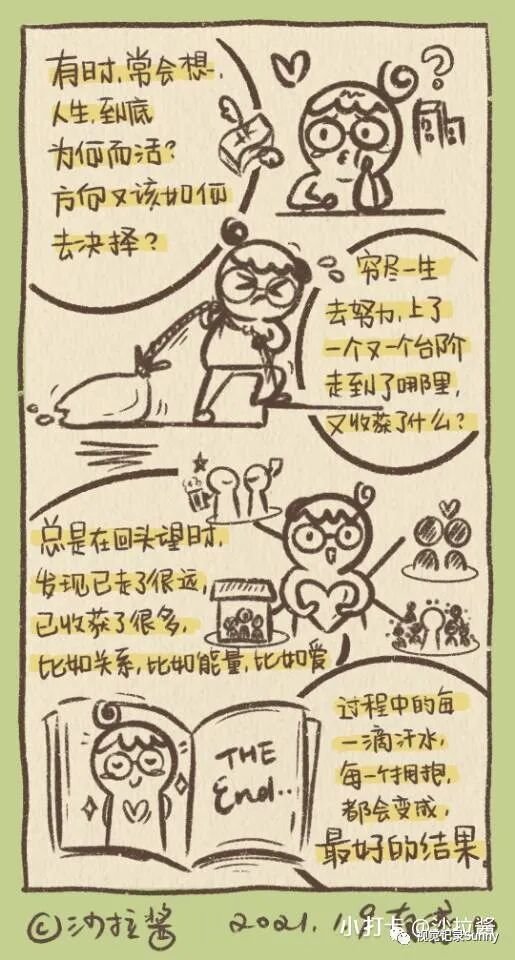 有时,常会想,
人生,到底
为何而活?
方向又该如何
去决择?
?
穷尽一生
去努力,上了
一个又一个台阶
走到了哪里,
又收获了什么?
总是在回头望时,
发现已走了很远,
已收获了很多,
比如关系,比如能量,比如爱
THE
End..
过程中的每
一滴汗水,
每一个拥抱,
都会变成,
最好的结果
©沙拉酱 2021.1
小打卡@沙拉酱
视觉记录sunny